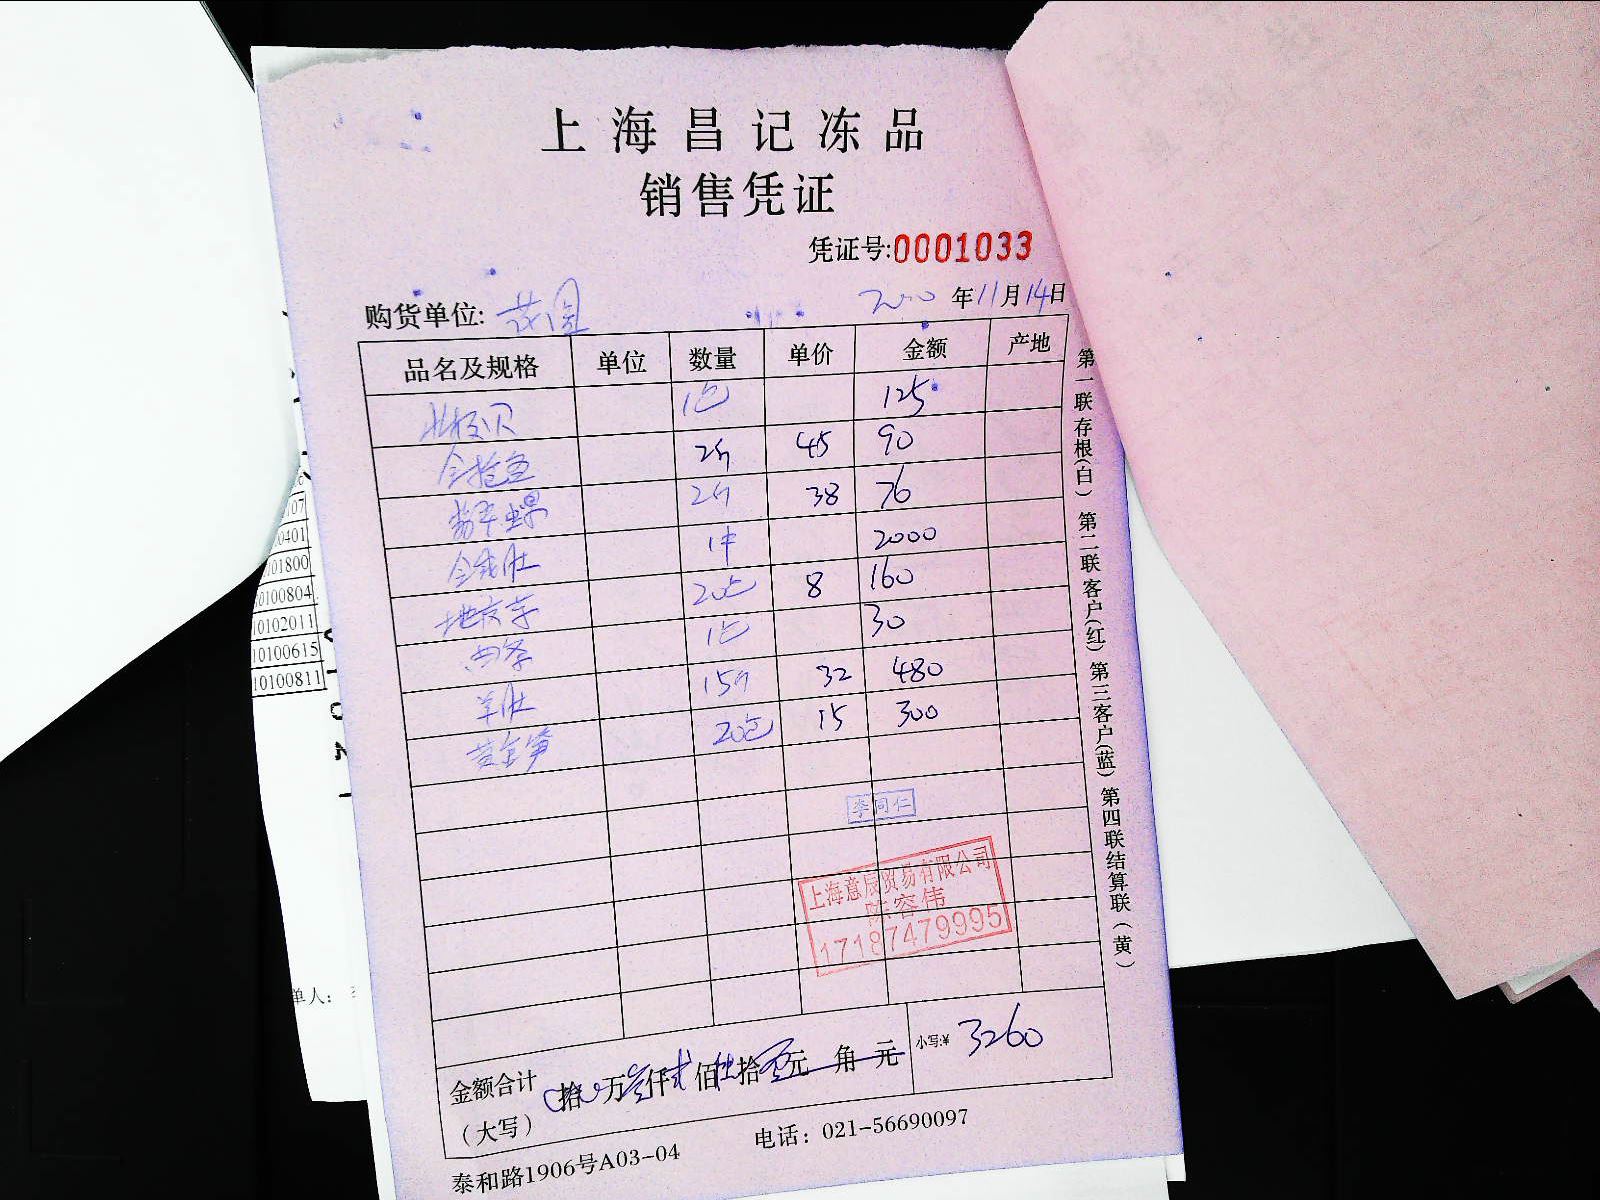 上海昌记冻品
销售凭证
凭证号:0001033
购货单位: 花园 年11月14日
品名及规格 单位 数量 单价 金额 产地
北极贝 1包 125
金枪鱼 2斤 45 90
翡翠螺 2斤 38 76
金钱肚 1件 2000
地皮菜 20包 8 160
1包 30
羊肚 15斤 32 480
黄金笋 20包 15 300
李同仁
上海意辰贸易有限公司
陈容伟
17187479995
金额合计 拾 万叁仟贰佰 拾 元 角 元 小写:¥ 3260
(大写)
泰和路1906号A03-04 电话: 021-56690097
第一联存根(白) 第二联客户(红) 第三客户(蓝) 第四联结算联(黄)
107
0401
101800
10100804
10102011
10100615
10100811
单人: